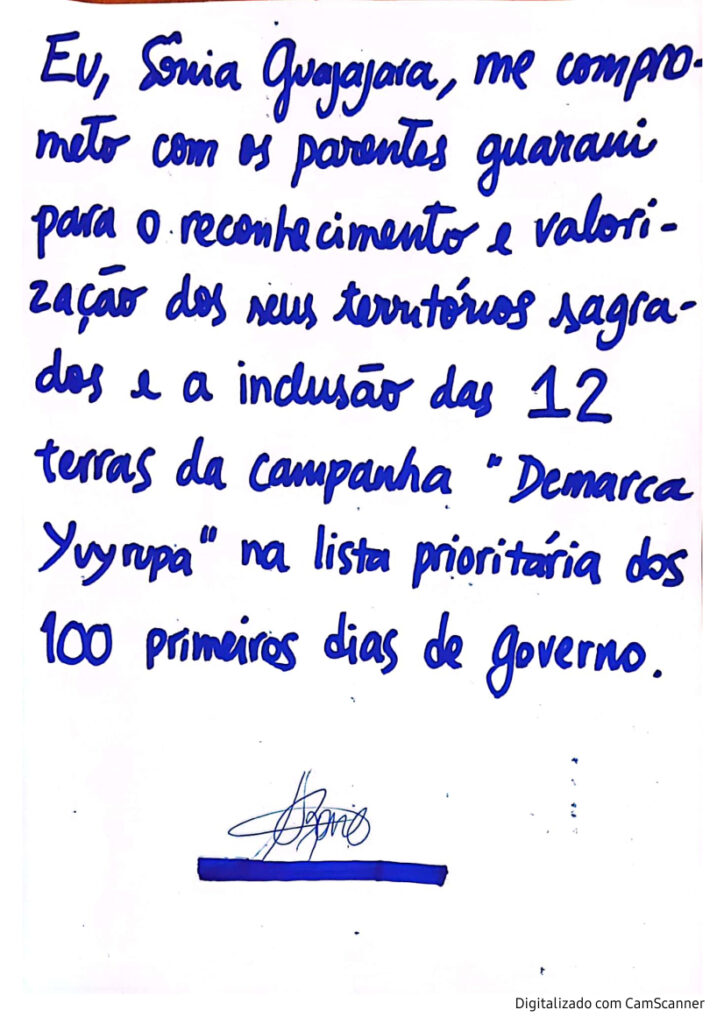 Eu, Sônia Guajajara, me compro-
meto com os parentes guarani
para o reconhecimento e valori-
zação dos seus territórios sagra-
dos e a inclusão das 12
terras da campanha "Demarca
Yvyrupa" na lista prioritária dos
100 primeiros dias de governo.
Digitalizado com CamScanner